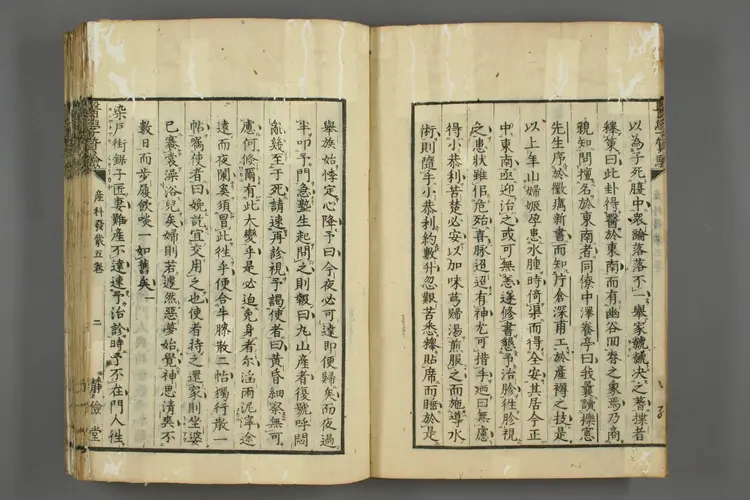 以為子死腹中衆論落落不一舉家虢虢決之蓍擇者
繹策曰此卦得醫於東南而有幽谷回春之象焉乃商
親知問擅名於東南者同僚中澤養亭曰我曩讀櫟憲
先生序於徽瘡新書而知片倉深甫工於產褥之技是
以上年山婦娠孕患水腫時倚渠而得全安其居今正
中東南亟迎治之或可無恙遂修書懇予治胗徃胗視
之患狀雖似危殆喜脉迢迢有神尤可措手廼曰無慮
得小恭利苦楚必安以加味芎歸湯煎服之而施導水
術則隨手小恭利約數升忽艱苦悉釋貼席而睡於是
舉族始悸定心降予曰今夜必可達即便歸矣而夜過
半叩予門急甦生起問之則報曰九山產者復號呼悶
亂幾至于死請速再診視予謁使者曰黃昏細察無可
慮何倏爾有此大變乎是必迫免身者尓滷雨泥濘途
遠而夜闌奚須冒此徃乎便合牛膝散二帖獨行散一
帖囑使者曰娩訖宜交用之也使者持之還家則坐婆
已褰袁澡浴兒矣婦則若遽然惡夢始覺神思清爽不
數日而步履飲啖一如舊矣
染戶街鋸子匠妻難產不達速予治診時予不在門人徃
產科發蒙五卷
二
靜儉堂